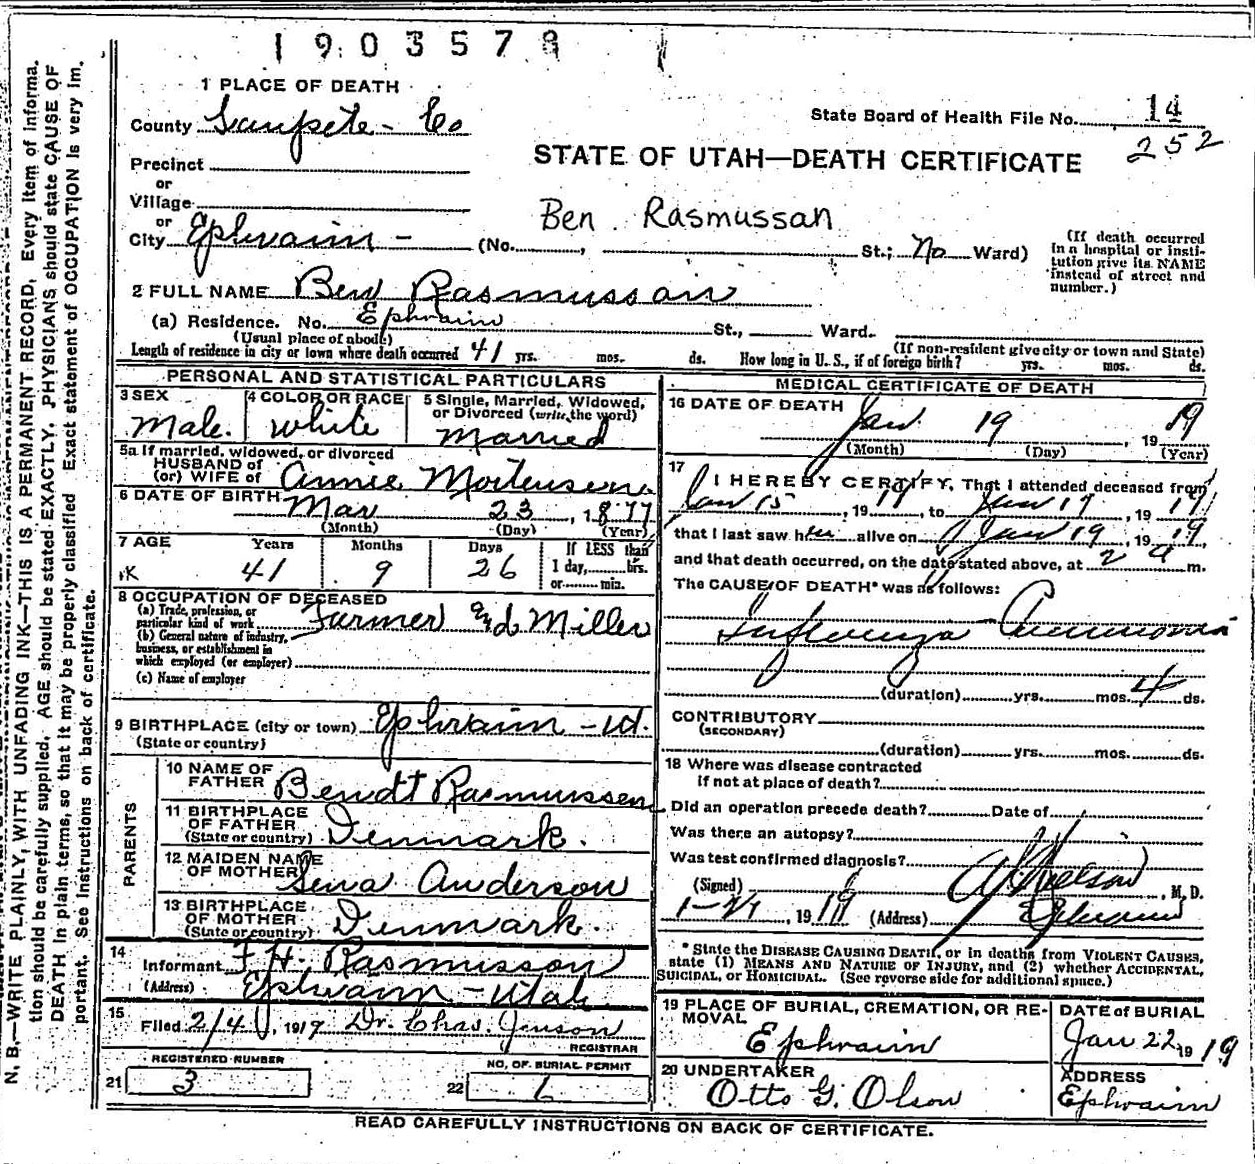 1903578
1 PLACE OF DEATH
County Sanpete - Co
State Board of Health File No. 14
252
STATE OF UTAH—DEATH CERTIFICATE
Precinct
or
Village
Ben Rasmussan
or
City Ephraim - (No. , St.; No Ward)
(If death occurred in a hospital or institution give its NAME instead of street and number.)
2 FULL NAME Ben Rasmussan
(a) Residence. No. Ephraim St., Ward.
(Usual place of abode) (If non-resident give city or town and State)
Length of residence in city or town where death occurred 41 yrs. mos. ds. How long in U. S., if of foreign birth? yrs. mos. ds.
PERSONAL AND STATISTICAL PARTICULARS
3 SEX
Male.
4 COLOR OR RACE
White
5 Single, Married, Widowed, or Divorced (write the word)
Married
5a If married, widowed, or divorced
HUSBAND of
(or) WIFE of Annie Mortensen
6 DATE OF BIRTH Mar 23, 1877
(Month) (Day) (Year)
7 AGE Years Months Days If LESS than
41 9 26 1 day, hrs.
or min.
8 OCCUPATION OF DECEASED
(a) Trade, profession, or
particular kind of work Farmer and Miller
(b) General nature of industry,
business, or establishment in
which employed (or employer)
(c) Name of employer
9 BIRTHPLACE (city or town) Ephraim - Ut.
(State or country)
PARENTS
10 NAME OF
FATHER Bendt Rasmussen
11 BIRTHPLACE
OF FATHER
(State or country) Denmark.
12 MAIDEN NAME
OF MOTHER Sena Anderson
13 BIRTHPLACE
OF MOTHER
(State or country) Denmark.
14
Informant F. H. Rasmusson
(Address) Ephraim - Utah.
15
Filed 2/4, 1919 Dr. Chas. Jenson
REGISTRAR
REGISTERED NUMBER
21 3
NO. OF BURIAL PERMIT
22 6
MEDICAL CERTIFICATE OF DEATH
16 DATE OF DEATH Jan 19, 1919
(Month) (Day) (Year)
17
I HEREBY CERTIFY, That I attended deceased from
Jan 15, 1919, to Jan 19, 1919,
that I last saw him alive on Jan 19, 1919,
and that death occurred, on the date stated above, at 2 a m.
The CAUSE OF DEATH* was as follows:
Influenza Pneumonia
(duration) yrs. mos. 4 ds.
CONTRIBUTORY
(SECONDARY)
(duration) yrs. mos. ds.
18 Where was disease contracted
if not at place of death?
Did an operation precede death? Date of
Was there an autopsy?
Was test confirmed diagnosis?
(Signed) Nielson, M. D.
1-21, 1919 (Address) Ephraim
* State the DISEASE CAUSING DEATH, or in deaths from VIOLENT CAUSES,
state (1) MEANS AND NATURE OF INJURY, and (2) whether ACCIDENTAL,
SUICIDAL, or HOMICIDAL. (See reverse side for additional space.)
19 PLACE OF BURIAL, CREMATION, OR REMOVAL
Ephraim
DATE of BURIAL
Jan 22 1919
20 UNDERTAKER
Otto G. Olson
ADDRESS
Ephraim
READ CAREFULLY INSTRUCTIONS ON BACK OF CERTIFICATE.
N. B.—WRITE PLAINLY, WITH UNFADING INK—THIS IS A PERMANENT RECORD. Every item of informa.
tion should be carefully supplied. AGE should be stated EXACTLY. PHYSICIANS should state CAUSE OF
DEATH in plain terms, so that it may be properly classified. Exact statement of OCCUPATION is very im.
portant. See instructions on back of certificate.